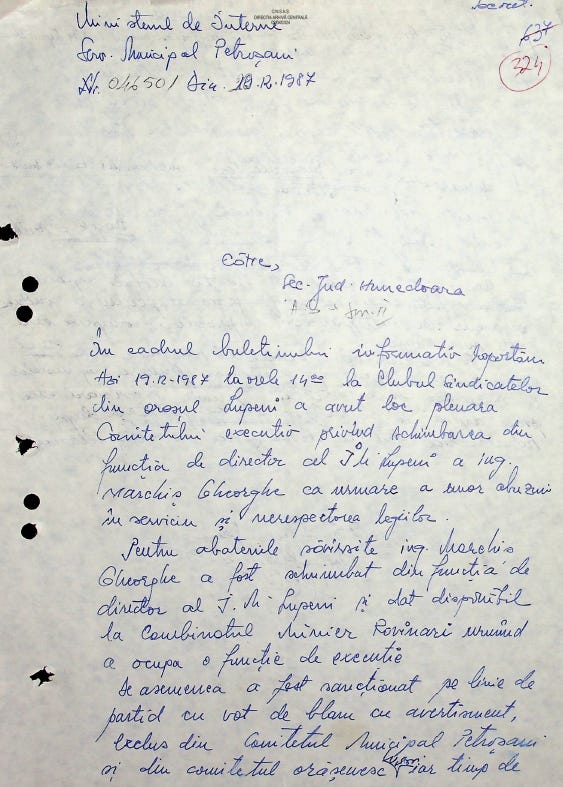 secret.
C.N.S.A.S.
DIRECȚIA ARHIVĂ CENTRALĂ
Ministerul de Interne
Serv. Municipal Petroșani
Nr. 046501 din 19.12.1987
637
324
Către,
Sec. Jud. Hunedoara
În cadrul buletinului informativ raportăm
Azi 19.12.1987 la orele 1400 la Clubul Sindicatelor
din orașul Lupeni a avut loc plenara
Comitetului executiv privind schimbarea din
funcția de director al I M Lupeni a ing.
Marchiș Gheorghe ca urmare a unor abuzuri
în serviciu și nerespectarea legiilor.
Pentru abaterile săvîrsite ing. Marchiș
Gheorghe a fost schimbat din funcția de
director al I. M. Lupeni și dat disponibil
la Combinatul Minier Rovinari urmînd
a ocupa o funcție de execuție
De asemenea a fost sancționat pe linie de
partid cu vot de blam cu avertisment,
exclus din Comitetul Municipal Petroșani
și din comitetul orășenesc Lupeni iar timp de